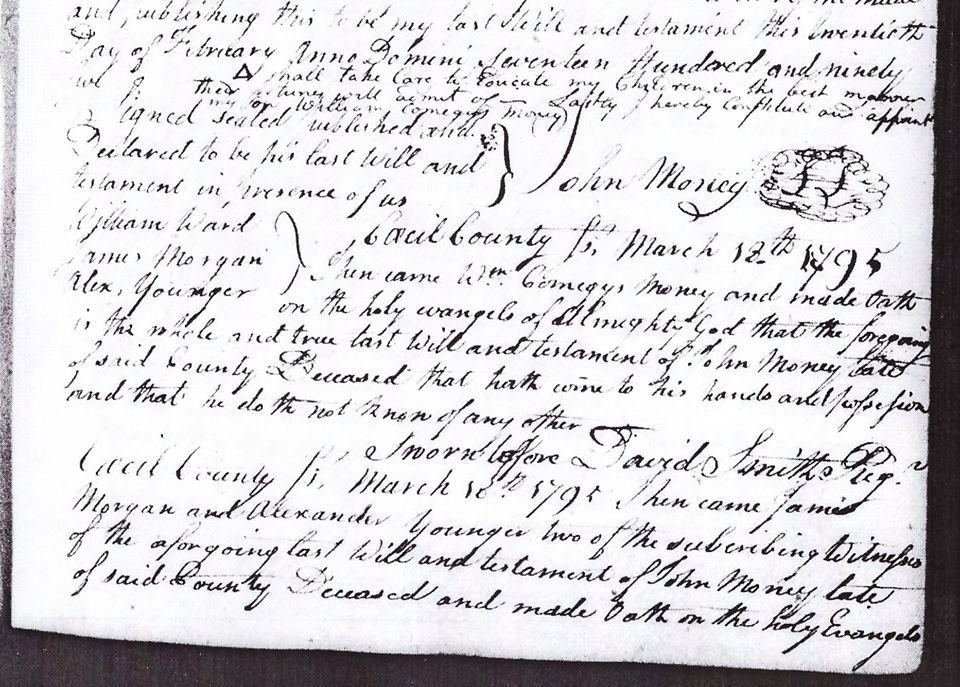 and publishing this to be my last Will and testament this twentieth
Day of February Anno Domini Seventeen Hundred and ninety
shall take Care to Educate my Children in the best manner
their fortunes will admit of Lastly I hereby Constitute and appoint
my son William Comegys Money
Signed sealed published and
Declared to be his last Will and
testament in presence of us
John Money
William Ward
James Morgan
Alex. Younger
Cecil County Ss. March 18th 1795
Then came Wm. Comegys Money and made Oath
on the holy evangels of Almighty God that the foregoing
is the whole and true last Will and testament of John Money late
of said County Deceased that hath come to his hands and possession
and that he doth not know of any other
Sworn before David Smith Reg.r
Cecil County Ss. March 18th 1795 Then came James
Morgan and Alexander Younger two of the subcribing Witnesses
of the aforgoing last Will and testament of John Money late
of said County Deceased and made Oath on the holy Evangels